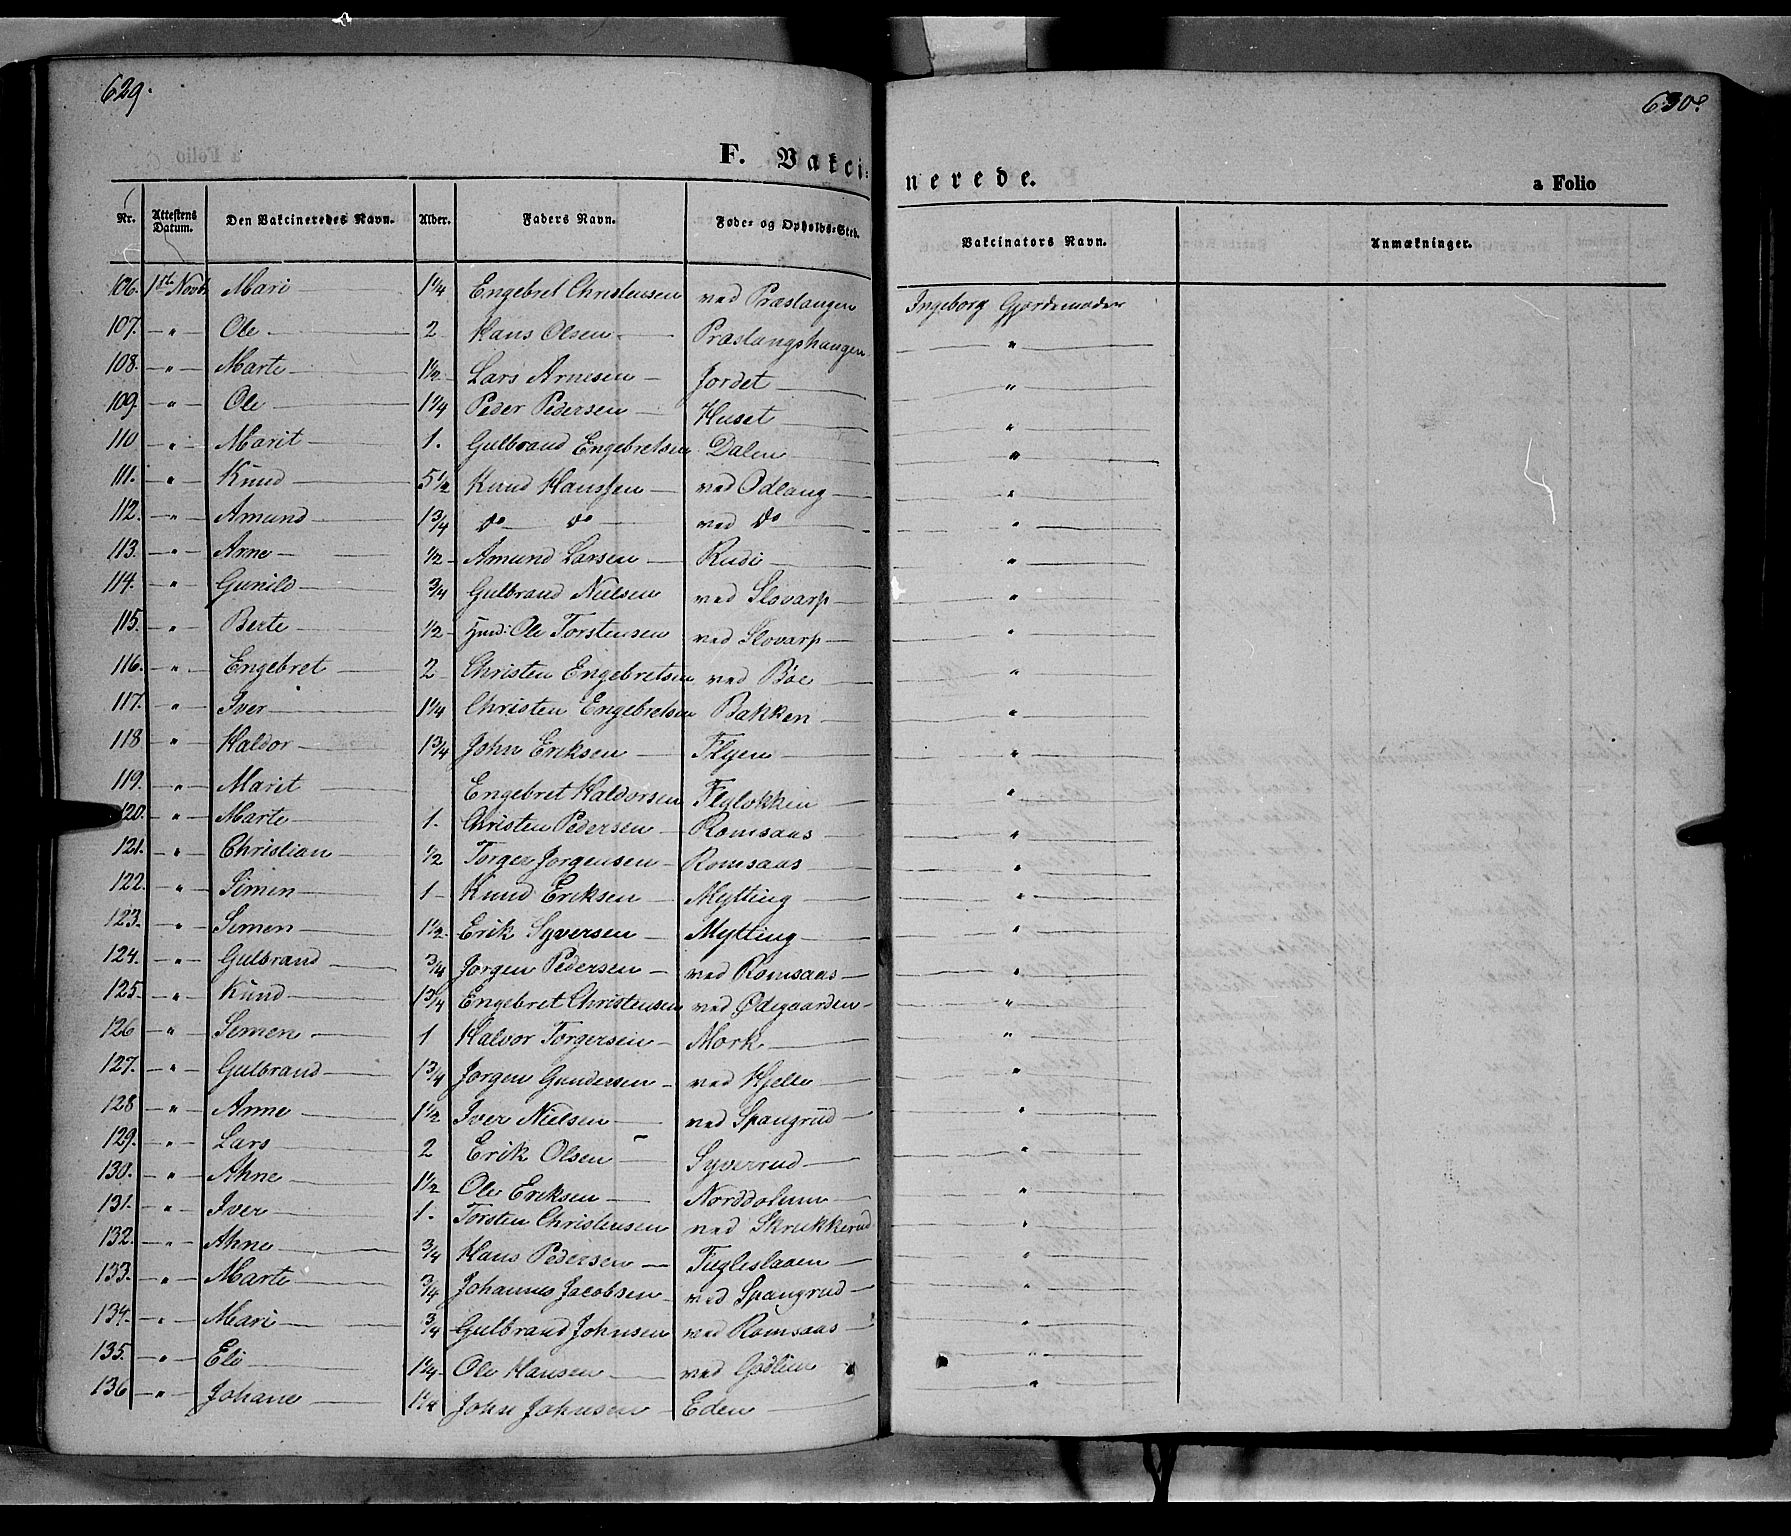 629. 630.
F. Vakcinerede. a Folio
Nr. Attestens Datum. Den Vakcineredes Navn. Alder. Faders Navn. Føde- og Opholds-Sted. Vakcinators Navn. Anmækninger.
106. 1ste Novb. Mari 1 1/4 Engebret Christensen ved Præstangen Ingeborg Gjordemoder
107. - " - Ole 2 Hans Olsen Præstangshaugen "
108. - " - Marte 1 1/2 Lars Arnesen Jordet "
109. - " - Ole 1 1/4 Peder Pedersen Huset "
110 - " - Marit 1. Gulbrand Engebretsen Dalen "
111. - " - Knud 5 1/2 Knud Hanssen ved Odlang "
112. - " - Amund 1 3/4 do do ved do "
113. - " - Arne 1/2 Amund Larsen Rudi "
114. - " - Gunild 3/4 Gulbrand Nielsen ved Slovarp "
115. - " - Berte 1/2 Ole Torstensen ved Slovarp "
116. - " - Engebret 2 Christen Engebretsen ved Bøe "
117. - " - Iver 1 1/4 Christen Engebretsen Bakken "
118 - " - Haldor 1 3/4 John Eriksen Flyen "
119. - " - Marit Engebret Haldorsen Flyløkken "
120. - " - Marte 1. Christen Pedersen Romsaas "
121. - " - Christian 1/2 Torger Jorgensen Romsaas "
122. - " - Simen 1 Knud Eriksen Mytting "
123. - " - Simen 1 1/2 Erik Syversen Mytting "
124. - " - Gulbrand 3/4 Jorgen Pedersen ved Romsaas "
125. - " - Knud 1 3/4 Engebret Christensen ved Ødegaarden "
126 - " - Simen 1 Halvor Torgersen Mork "
127. - " - Gulbrand 1 3/4 Jorgen Gundersen ved Hjelle "
128 - " - Anne 1 1/2 Iver Nielsen ved Spangrud "
129. - " - Lars 2 Erik Olsen Syverrud "
130. - " - Ahne 1 1/2 Ole Eriksen "
131. - " - Iver 1. Torsten Christensen ved Skrukkerud "
132. - " - Ahne 3/4 Hans Pedersen Fugleslaaen "
133. - " - Marte 3/4 Johannes Jacobsen ved Spangrud "
134. - " - Mari 3/4 Gulbrand Johnsen ved Romsaas "
135. - " - Eli 1 1/4 Ole Hansen ved Godlien "
136 - " - Johane 1 1/4 John Johnsen Eden "